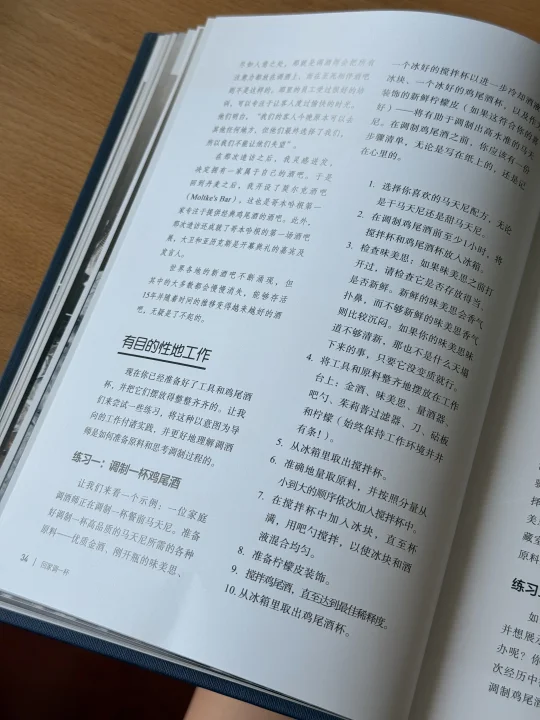 尽如人意之处，那就是调酒师会把所有
注意力都放在调酒上，而在瓦琥珀酒吧
则不是这样的，那里的员工受过很好的培
训，可以专注于让客人度过愉快的时光。
他们明白，“我们的客人今晚原本可以去
其他任何地方，但他们最终选择了我们，
所以我们不能让他们失望”。
在那次造访之后，我灵感迸发，
决定拥有一家属于自己的酒吧。于是
回到丹麦之后，我开设了莫尔克酒吧
（Moltke's Bar）。这也是哥本哈根第一
家专注于提供经典鸡尾酒的酒吧。此外，
那次造访还成就了哥本哈根的第一场酒吧
展，大卫和亚历克斯是开幕典礼的嘉宾及
发言人。
世界各地的新酒吧不断涌现，但
其中的大多数都会慢慢消失，能够存活
15年并随着时间的推移变得越来越好的酒
吧，无疑是了不起的。
有目的性地工作
现在你已经准备好了工具和鸡尾酒
杯，并把它们摆放得整整齐齐的。让我
们来尝试一些练习，将这种以意图为导
向的工作付诸实践，并更好地理解调酒
师是如何准备原料和思考调制过程的。
练习一：调制一杯鸡尾酒
让我们来看一个示例：一位家庭
调酒师正在调制一杯餐前马天尼。准备
好调制一杯高品质的马天尼所需的各种
原料——优质金酒、刚开瓶的味美思、
34 | 回家调一杯
一个冰好的搅拌杯以进一步冷却酒液
冰块、一个冰好的鸡尾酒杯，以及作为
装饰的新鲜柠檬皮（如果这符合你的
好）——将有助于调制出高水准的马天
尼。在调制鸡尾酒之前，你应该有一份
步骤清单，无论是写在纸上的，还是记
在心里的。
1. 选择你喜欢的马天尼配方，无论
是干马天尼还是甜马天尼。
2. 在调制鸡尾酒前至少1小时，将
搅拌杯和鸡尾酒杯放入冰箱。
3. 检查味美思：如果味美思之前打
开过，请检查它是否存放得当、
是否新鲜。新鲜的味美思会香气
扑鼻，而不够新鲜的味美思香气
则比较沉闷。如果你的味美思味
道不够清新，那也不是什么天塌
下来的事，只要它没变质就行。
4. 将工具和原料整齐地摆放在工作
台上：金酒、味美思、量酒器、
吧勺、茱莉普过滤器、刀、砧板
和柠檬（始终保持工作环境井井
有条！）。
5. 从冰箱里取出搅拌杯。
6. 准确地量取原料，并按照分量从
小到大的顺序依次加入搅拌杯中。
7. 在搅拌杯中加入冰块，直至杯
满，用吧勺搅拌，以使冰块和酒
液混合均匀。
8. 准备柠檬皮装饰。
9. 搅拌鸡尾酒，直至达到最佳稀释度。
10. 从冰箱里取出鸡尾酒杯。
原料
练习
如
并想展示
办呢？你
次经历中
调制鸡尾酒